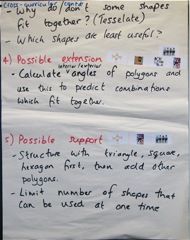 Cross-curricular
- Why do don't some shapes
fit together? (Tesselate)
- Which shapes are least useful?
4) Possible extension
interior/exterior
- Calculate angles of polygons and
use this to predict combinations
which fit together.
5) Possible support
- Structure with triangle, square,
hexagon first, then add other
polygons.
- Limit number of shapes that
can be used at one time